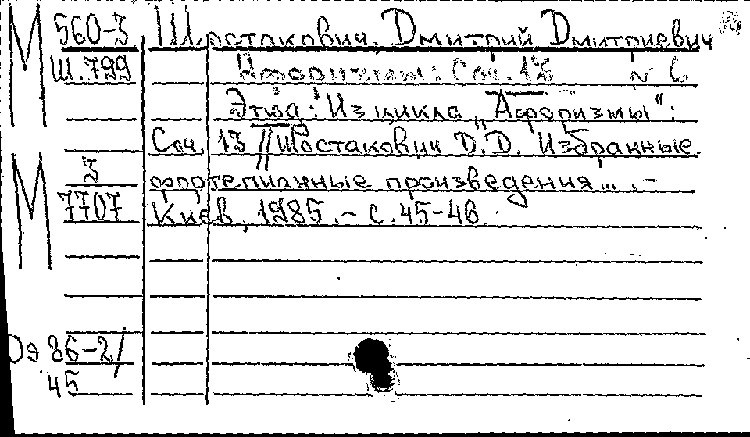 М 560-3 Шостакович, Дмитрий Дмитриевич
Ш.799 Афоризмы: Соч. 13 № 6
Этюд: Из цикла „Афоризмы":
Соч. 13 // Шостакович Д.Д. Избранные
М 3 фортепианные произведения... .-
7707 Киев, 1985. - с. 45-46.
Оэ 86-2/
45